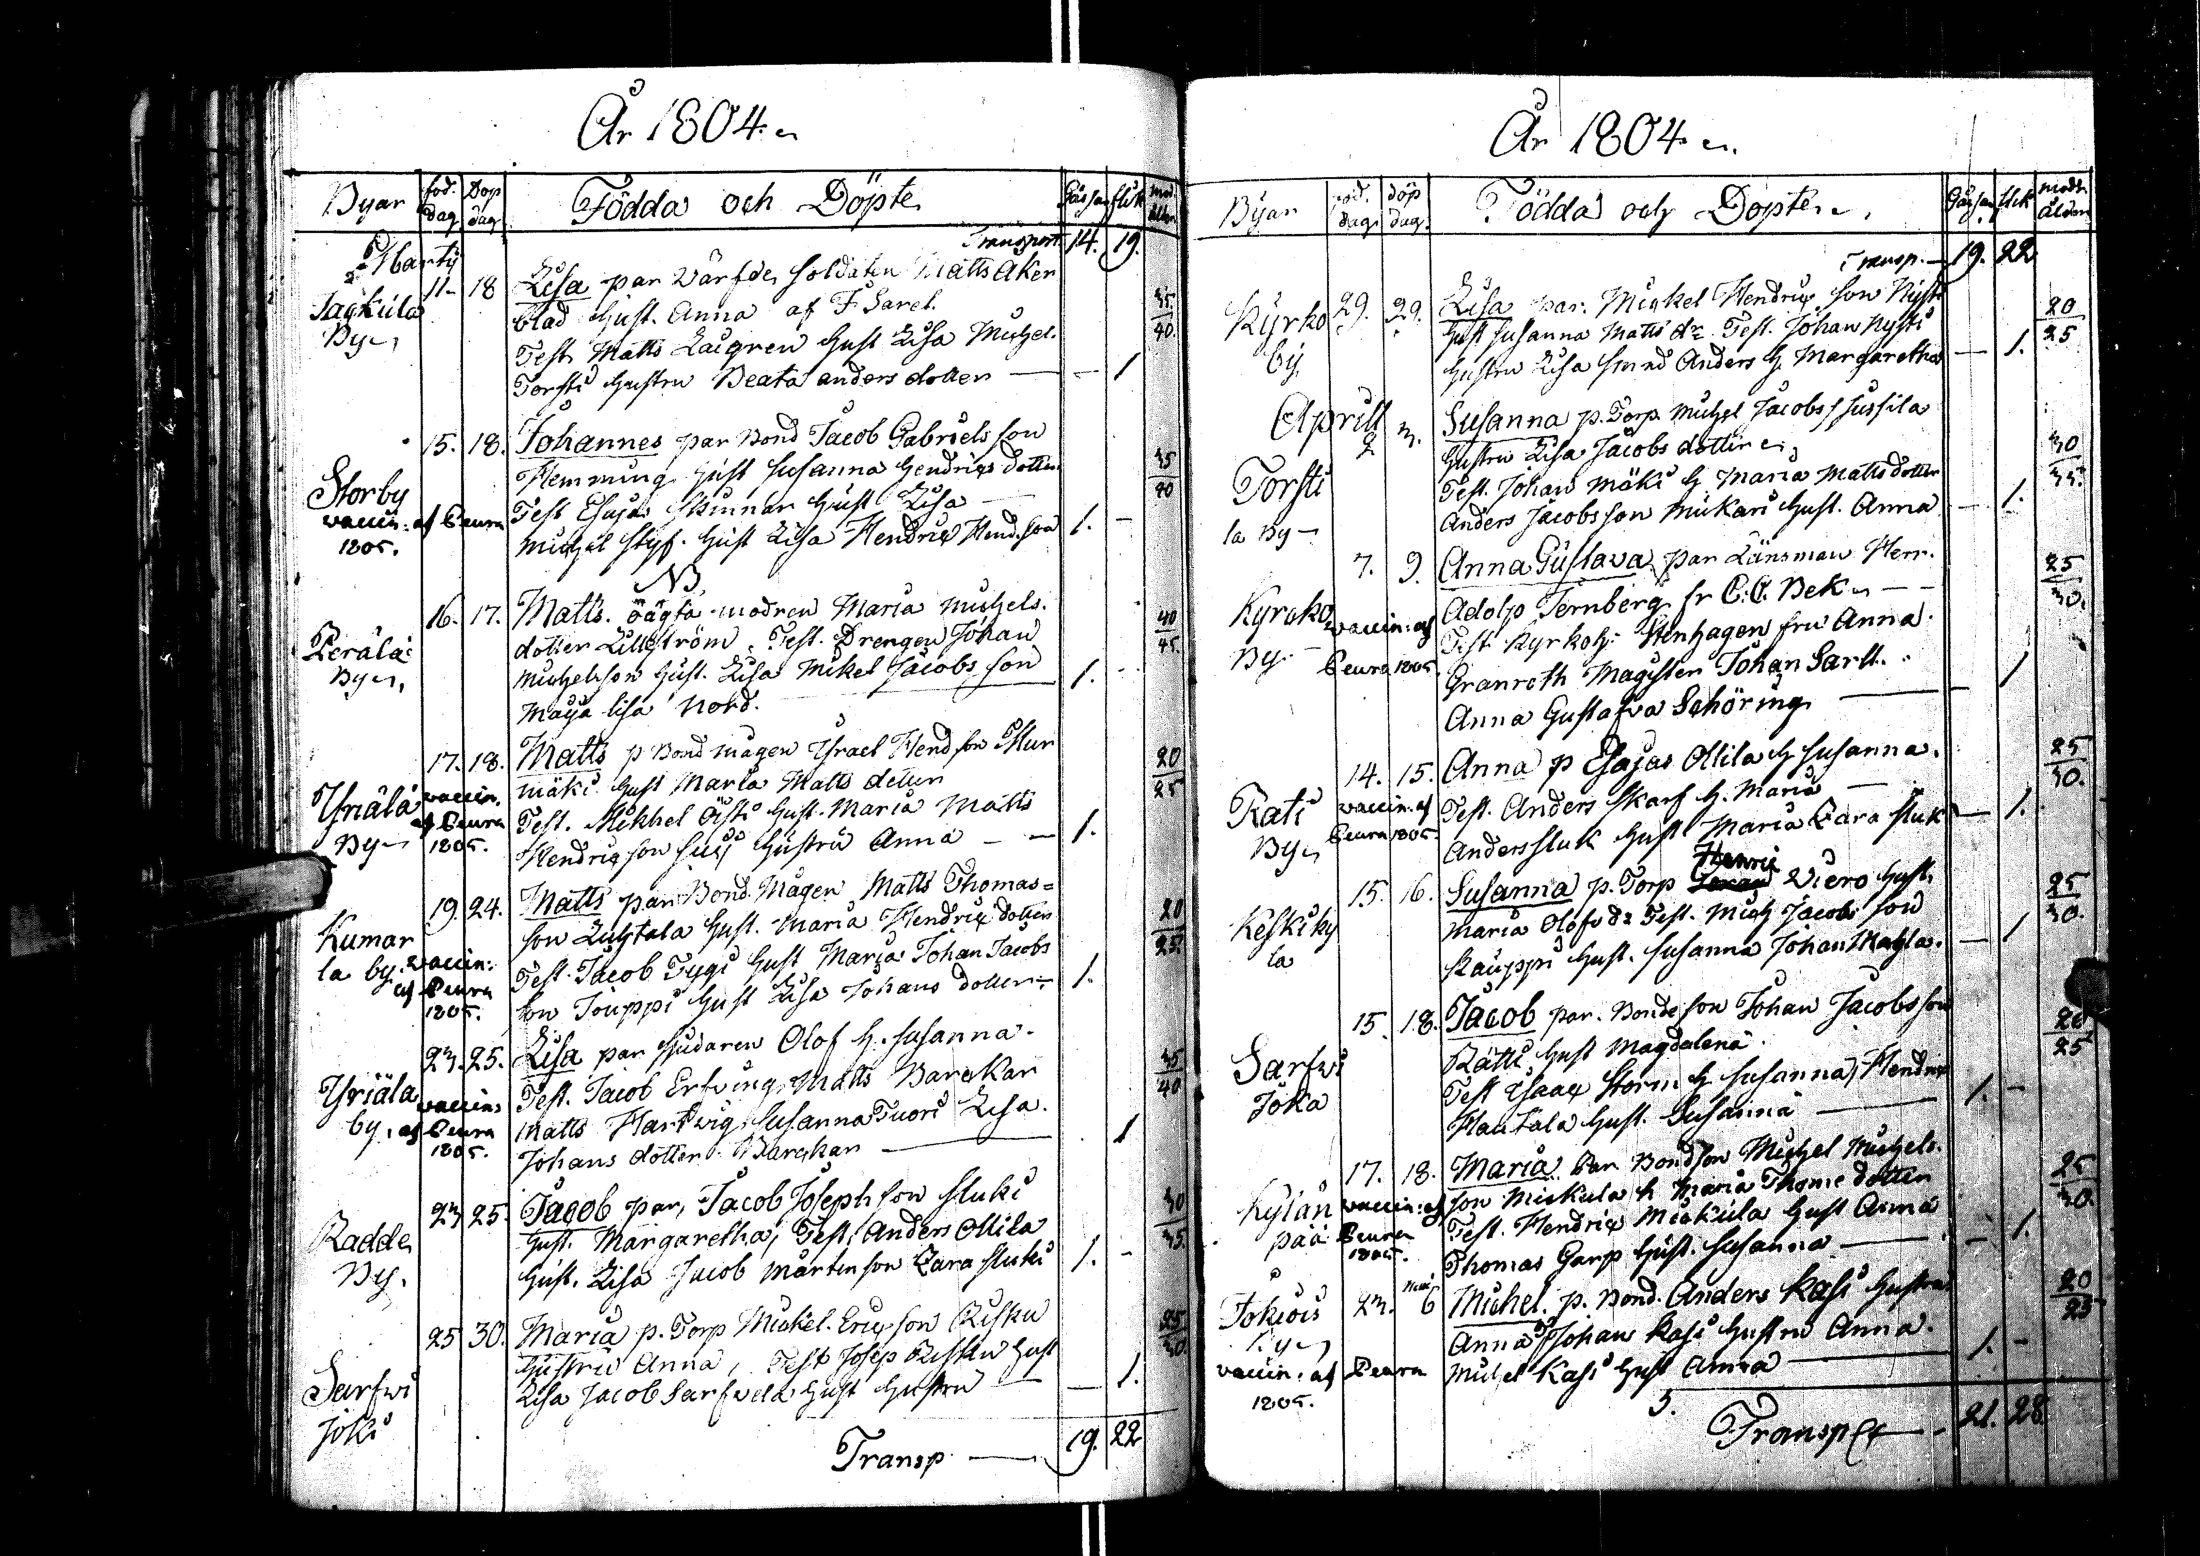 År 1804.
Byar föd. dag Döp dag Födda och Döpte Gåssar flik mod. ålder
Transport 14. 19.
Marty
Jaakula By 11. 18 Lisa par Värfde soldaten Matts Åker
blad hust. Anna af F Sarel. 35/40
Test. Matts Lacgren hust Lisa Michel.
Torsti hustru Beata anders dotter — 1
15. 18. Johannes par Bond Jacob Gabriels son
Storby Hemming hust Susanna Hendrics dotter 35/40
vaccin. af Peura Test Esajas Skinnar hust Lisa
1805. Michel Styf. hust Lisa Hendric Hend. son 1. -
NB
16. 17. Matts. oägta modren Maria Michels. 40/45
Perälä By dotter Lilleström, Test. Drengen Johan
Michelsson hust. Lisa Mikel Jacobs son 1. -
Maja lisa Nord.
17. 18. Matts p Bond mågen Ysrael Hend son Mur 20/25
mäki hust Maria Matts dotter
Yriälä By vaccin. af Peura 1805. Test. Mikhel Östi hust. Maria Matts
Hendricson hustru Anna — 1.
19. 24. Matts par Bond. Mågen Matts Thomas=
Kumar la by son Luhtala hust. Maria Hendrics dotter 20/25
vaccin. af Peura 1805. Test. Jacob Tygi hust Maria Johan Jacobs
son Jouppi hust Lisa Johans dotter 1.
23. 25. Lisa par Olof h. Susanna. 35/40
Yriäla by, vaccin. af Peura 1805. Test. Jacob Erfving, Matts Barckar
Matts Hartvig, Susanna Tuori Lisa. 1
Johans dotter Barckar
23 25. Jacob par, Jacob Joseph son Sluki 30/35
Radde By. hust. Margaretha, Test, Anders Ollila
hust. Lisa Jacob Mårtenson Lara Sluki 1. -
25 30. Maria p. Torp Mickel. Ericson Risku 25/30
hustru Anna, Test Josep Risku hust
Sarfwi joki Lisa Jacob Sarfwela hust hustru — 1.
Transp. — 19. 22

År 1804.
Byar föd. dag döp dag. Födda och Döpte Gåssar flik modr. ålder
Transp. — 19. 22
Kyrko by 29. 29. Lisa par. Mickel Hendric son Nysti 20/25
hust Susanna Matts dr. Test. Johan Nysti
hustru Lisa Anders h. Margaretha — 1.
Aprill
2 3. Susanna p. Torp. Michel Jacobs Jussila
hustru Lisa Jacobs dotter 30/35
Torsti la By Test. Johan Mäki h Maria Matts dotter
Anders Jacobsson Mickari hust. Anna — 1.
7. 9. Anna Gustava par Länsman Herr. 25/30.
Kyrcko By. vaccin. af Peura 1805. Adolp Fernberg fr C. C. Bek
Test Kyrkoh. Stenhagen fru Anna.
Granroth Magister Johan Sarll. 1
Anna Gustafva Schöring
14. 15. Anna p Esajas Ollila h Susanna. 25/30.
Rati By vaccin. af Peura 1805. Test. Anders Skarf h. Maria
Anders Sluk hust Maria Lara Sluk — 1.
15. 16. Susanna p. Torp Henric Viero hust. 25/30.
Keskiky la Maria Olofs dr Test. Mich Jacobs son
Kauppi hust. Susanna Johan — 1
15. 18. Jacob par. Bonde son Johan Jacobsson
Sarfwi Joka Rätti hust Magdalena 20/25
Test Esaac Storm h Susanna, Hendric
Hautala hust. Susanna — 1. -
17. 18. Maria par Bondson Michel Michels. 25/30.
Kylän pää vaccin. af Peura 1805. son Mickula h Maria Thome dotter
Test. Hendric Mickula hust Anna
Thomas Garp hust. Susanna — 1.
Jokiois By 23. Maij 6 Michel. p. Bond. Anders Kasi hustru 20/25
Anna Johan Kasi hustru Anna.
vaccin. af Peura 1805. Michel Kasi hust Anna 1. -
Transp — 21. 28